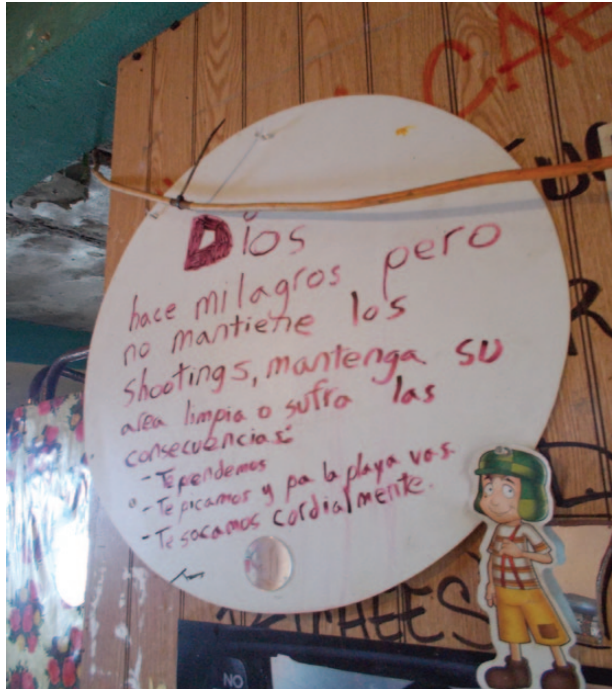 Dios
hace milagros pero
no mantiene los
shootings, mantenga su
area limpia o sufra las
consecuencias:
- Te pendemos
- Te picamos y pa la playa vas.
- Te sacamos cordialmente.
NO